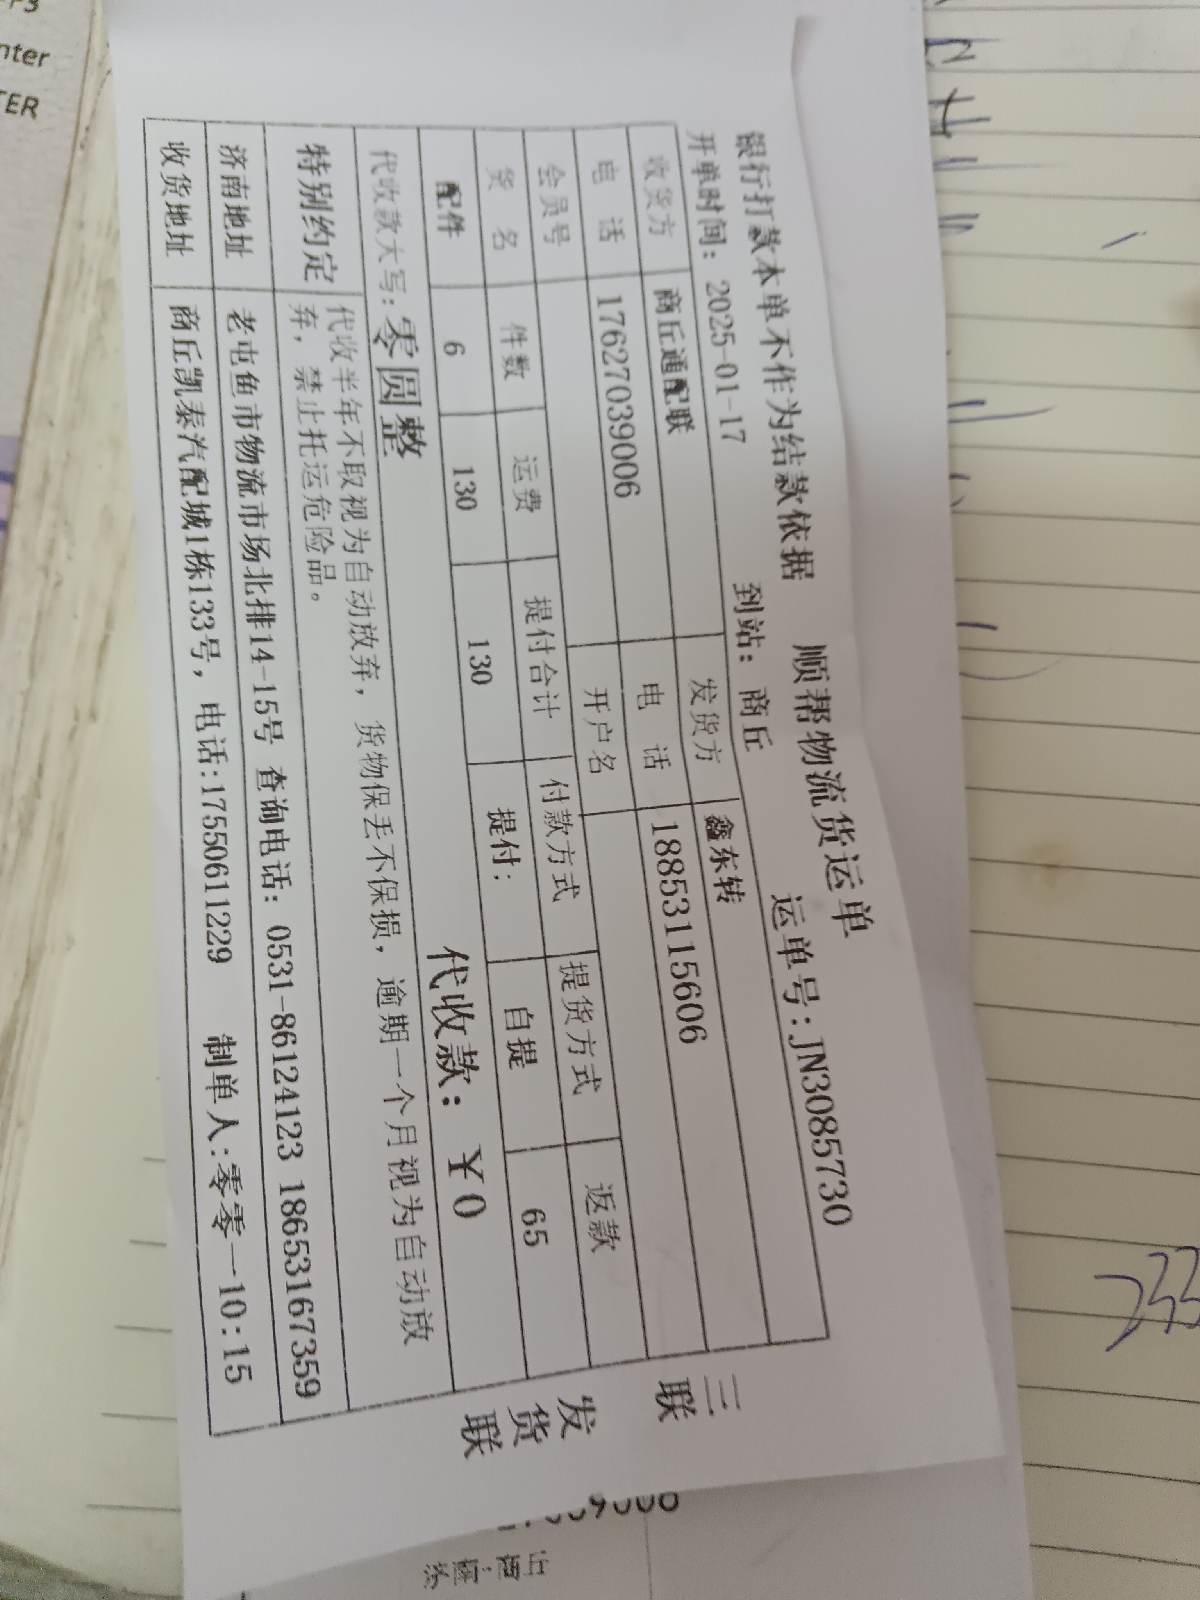 顺帮物流货运单
银行打款本单不作为结款依据
运单号:JN3085730
开单时间: 2025-01-17 到站: 商丘
收货方 商丘通配联 发货方 鑫东转
电 话 17627039006 电 话 18853115606
会员号 开户名
货 名 件数 运费 提付合计 付款方式 提货方式 返款
配件 6 130 130 提付: 自提 65
代收款大写: 零圆整 代收款: ￥0
特别约定 代收半年不取视为自动放弃, 货物保丢不保损, 逾期一个月视为自动放
弃, 禁止托运危险品。
济南地址 老屯鱼市物流市场北排14-15号 查询电话: 0531-86124123 18653167359
收货地址 商丘凯泰汽配城1栋133号, 电话:17550611229 制单人:零零一10:15
三联
发货联
nter
TER